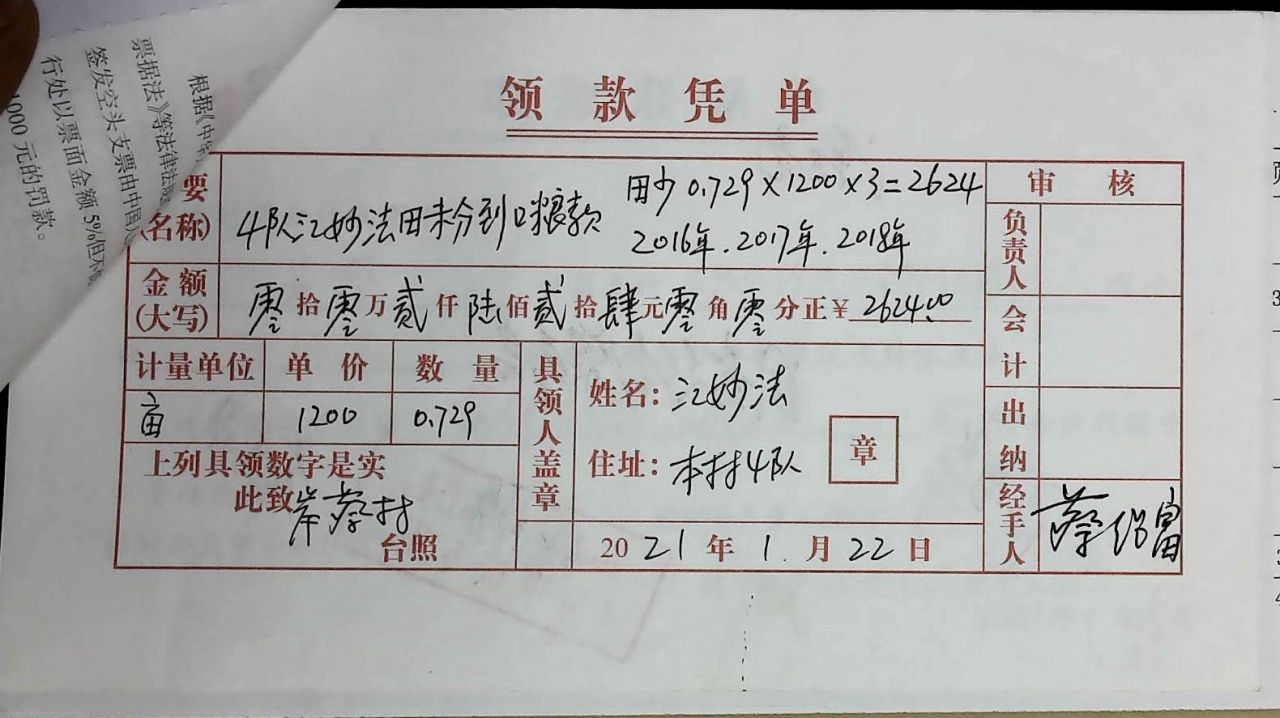 根据《中华
票据法》等法律法规
签发空头支票由中国人
行处以票面金额5%但不
1000元的罚款。
领款凭单
要
(名称)
4队江妙法田未分到口粮款
田少0.729×1200×3=2624
2016年.2017年.2018年
审核
负责人
金额
(大写)
零拾零万贰仟陆佰贰拾肆元零角零分正¥2624.00
会计
计量单位 单价 数量
亩 1200 0.729
具领人盖章
姓名：江妙法
住址：本村4队
章
出纳
上列具领数字是实
此致岸蔡村
台照
2021年1月22日
经手人
蔡绍富